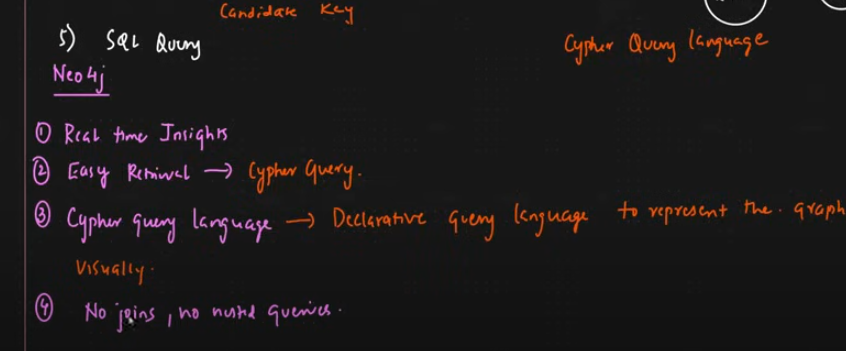 Candidate Key
5) SQL Query Cypher Query language
Neo4j
① Real time Insights
② Easy Retrieval → Cypher Query.
③ Cypher query language → Declarative query language to represent the graph
visually.
④ No joins, no nested queries.